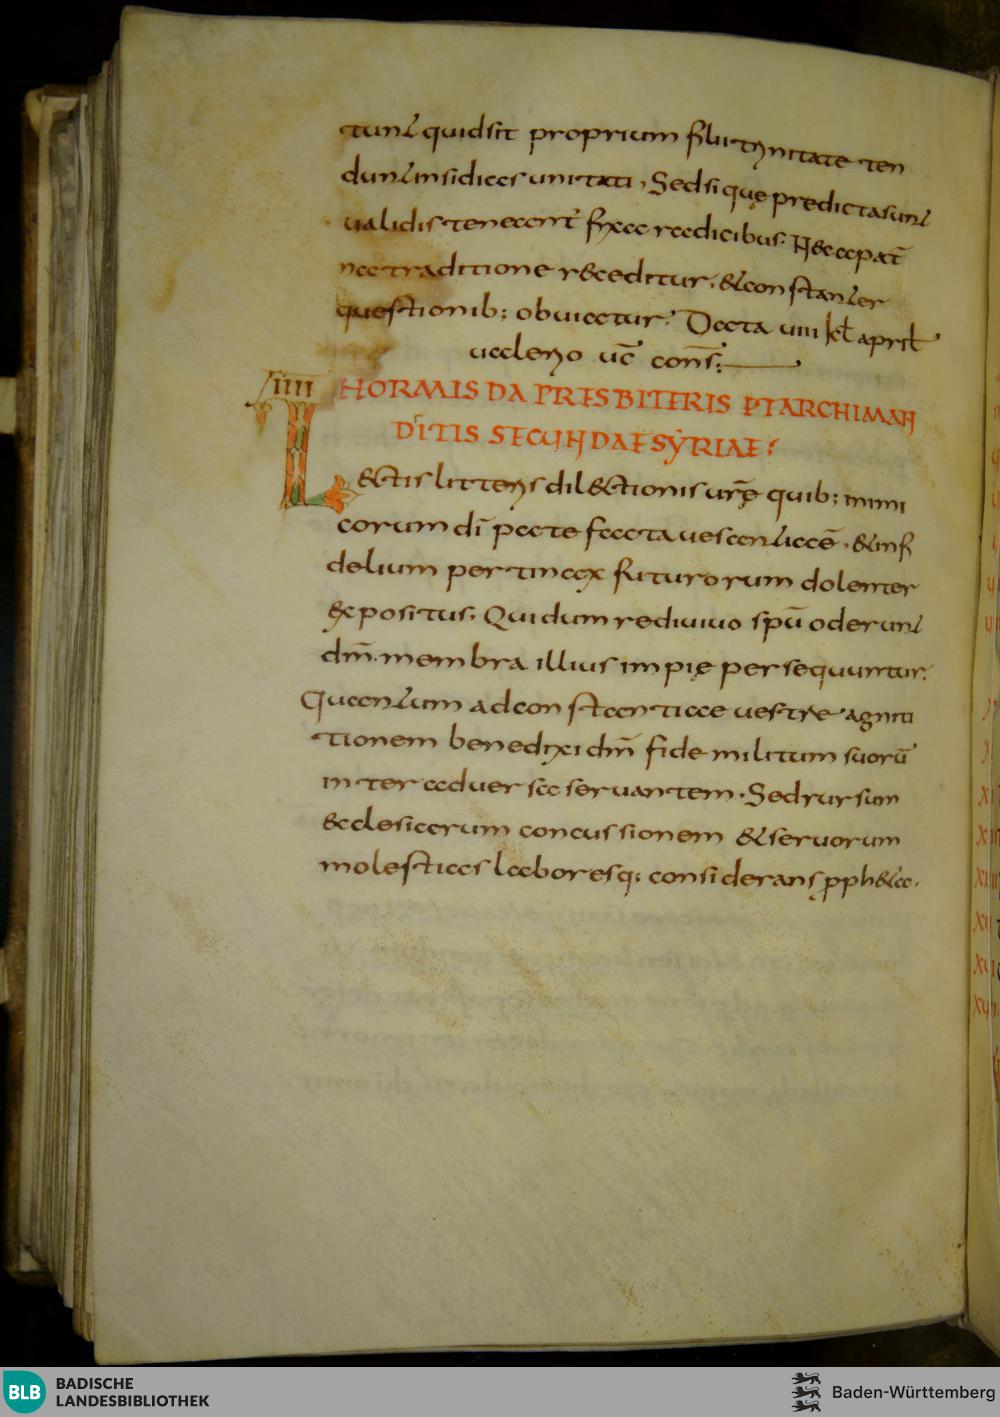 tunt quid sit proprium filii trinitate ten
dunt insidias unitati. Sed si quę predicta sunt
ualidis teneant̄ fixa radicibus. Nec a pat̄
na traditione receditur. & constanter
questionib; obuiatur. Data uiii kł april
ualerio uc̄ cons̄;
IIII HORMISDA PRESBITERIS ET ARCHIMAN
DITIS SECUNDAE SYRIAE;
Lectis litteris dilectionis urę̄ quib; inimi
corum dī patefacta uesantiacē. & infi
delium pertinax furorum dolenter
expositus. Qui dum rediuiuo spū oderunt
dm̄. membra illius impię persequuntur.
Quantum ad constantiae uestre agniti
tionem benedixi dm̄ fidem militum suorū
inter aduersa seruantem. Sed rursum
ecclesiarum concussionem & seruorum
molestias laboresq; considerans pph&a.
BLB BADISCHE
LANDESBIBLIOTHEK
Baden-Württemberg